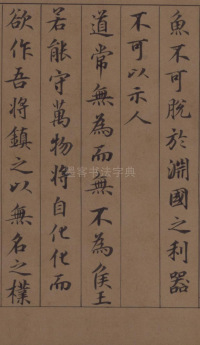 魚不可脫於淵國之利器
不可以示人
道常無為而無不為侯王
若能守萬物將自化化而
欲作吾將鎮之以無名之樸
墨客书法字典